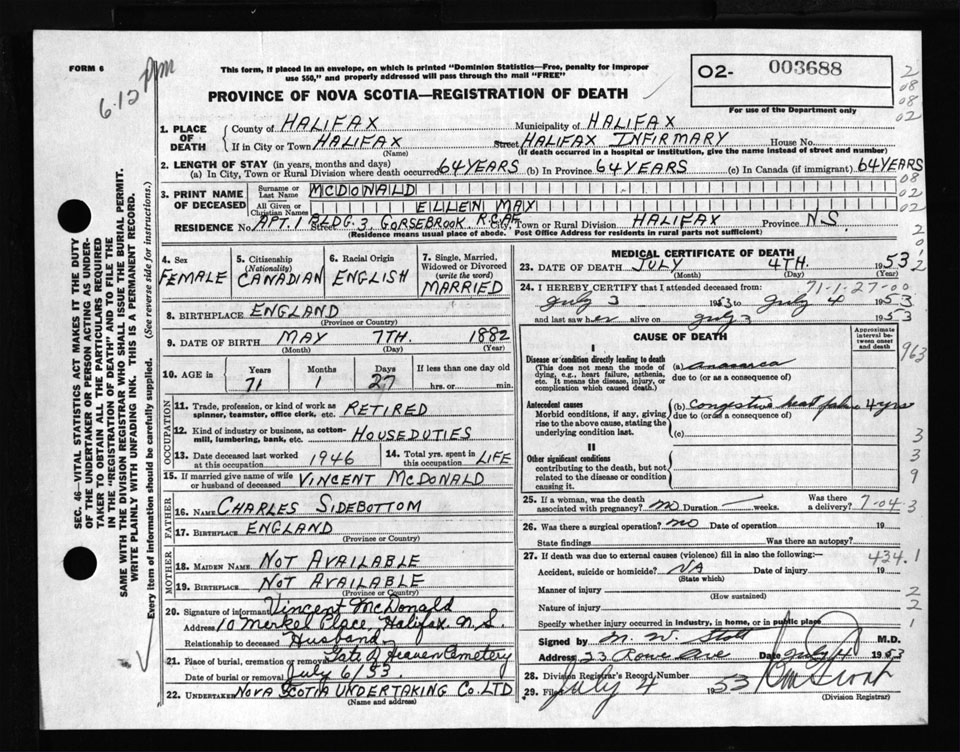 FORM 6
pm
6.12
This form, if placed in an envelope, on which is printed "Dominion Statistics—Free, penalty for improper
use $50," and properly addressed will pass through the mail "FREE"
PROVINCE OF NOVA SCOTIA—REGISTRATION OF DEATH
02- 003688
For use of the Department only
2
08
08
02
1. PLACE OF DEATH
County of HALIFAX Municipality of HALIFAX
If in City or Town HALIFAX (Name) Street HALIFAX INFIRMARY House No.
(If death occurred in a hospital or institution, give the name instead of street and number)
2. LENGTH OF STAY (in years, months and days)
(a) In City, Town or Rural Division where death occurred 64 YEARS (b) In Province 64 YEARS (c) In Canada (if immigrant) 64 YEARS
08
02
02
3. PRINT NAME OF DECEASED
Surname or Last Name MCDONALD
All Given or Christian Names EILLEN MAY
RESIDENCE No. APT. 1 BLDG. 3 Street GORSEBROOK R.C.A.F. City, Town or Rural Division HALIFAX Province N.S.
(Residence means usual place of abode. Post Office Address for residents in rural parts not sufficient)
SEC. 46—VITAL STATISTICS ACT MAKES IT THE DUTY
OF THE UNDERTAKER OR PERSON ACTING AS UNDER-
TAKER TO OBTAIN ALL THE PARTICULARS REQUIRED
IN THE "REGISTRATION OF DEATH" AND TO FILE THE
SAME WITH THE DIVISION REGISTRAR WHO SHALL ISSUE THE BURIAL PERMIT.
WRITE PLAINLY WITH UNFADING INK. THIS IS A PERMANENT RECORD.
Every item of information should be carefully supplied. (See reverse side for instructions.)
4. Sex FEMALE
5. Citizenship (Nationality) CANADIAN
6. Racial Origin ENGLISH
7. Single, Married, Widowed or Divorced (write the word) MARRIED
8. BIRTHPLACE ENGLAND
(Province or Country)
9. DATE OF BIRTH MAY 7TH. 1882
(Month) (Day) (Year)
10. AGE in Years 71 Months 1 Days 27 If less than one day hrs. or min.
OCCUPATION
11. Trade, profession, or kind of work as spinner, teamster, office clerk, etc. RETIRED
12. Kind of industry or business, as cotton-mill, lumbering, bank, etc. HOUSEDUTIES
13. Date deceased last worked at this occupation 1946 14. Total yrs. spent in this occupation LIFE
15. If married give name of wife or husband of deceased VINCENT MCDONALD
FATHER
16. Name CHARLES SIDEBOTTOM
17. Birthplace ENGLAND
(Province or Country)
MOTHER
18. Maiden Name NOT AVAILABLE
19. Birthplace NOT AVAILABLE
(Province or Country)
20. Signature of informant Vincent McDonald
Address 10 Merkel Place, Halifax N.S.
Relationship to deceased Husband
21. Place of burial, cremation or removal Gate of Heaven Cemetery
Date of burial or removal July 6/53.
22. UNDERTAKER NOVA SCOTIA UNDERTAKING CO. LTD
(Name and address)
MEDICAL CERTIFICATE OF DEATH
23. DATE OF DEATH JULY 4TH. 1953
(Month) (Day) (Year)
24. I HEREBY CERTIFY that I attended deceased from: 71-1-27-00
July 3 1953 to July 4 1953
and last saw her alive on July 3 1953
CAUSE OF DEATH
Approximate interval between onset and death
I
Disease or condition directly leading to death
(This does not mean the mode of dying, e.g., heart failure, asthenia, etc. It means the disease, injury, or complication which caused death.)
(a) Anasarca
due to (or as a consequence of)
Antecedent causes
Morbid conditions, if any, giving rise to the above cause, stating the underlying condition last.
(b) Congestive heart failure 4 yrs
due to (or as a consequence of)
(c)
II
Other significant conditions
contributing to the death, but not related to the disease or condition causing it.
25. If a woman, was the death associated with pregnancy? no Duration weeks. Was there a delivery? 7-04
26. Was there a surgical operation? no Date of operation 19
State findings Was there an autopsy?
27. If death was due to external causes (violence) fill in also the following: 434.1
Accident, suicide or homicide? NA Date of injury 19
(State which)
Manner of injury
(How sustained)
Nature of injury
Specify whether injury occurred in industry, in home, or in public place
Signed by M. W. Stott M.D.
Address 23 Rowe Ave Date July 4 1953
28. Division Registrar's Record Number
29. Filed July 4 1953
(Division Registrar)
963
3
3
9
3
2
2
1